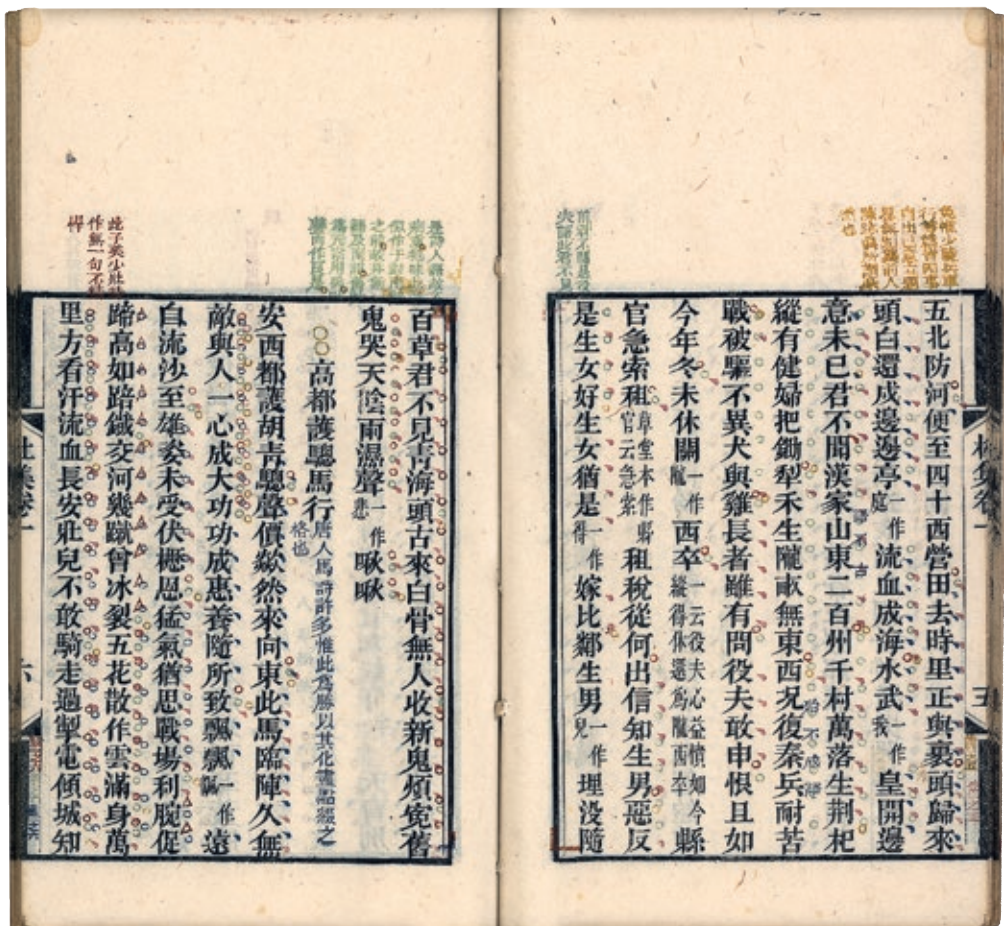 五北防河便至四十西營田去時里正與裹頭歸來
頭白還戍邊邊亭一作庭流血成海水武一作我皇開邊
意未已君不聞漢家山東二百州千村萬落生荆杞
縱有健婦把鋤犁禾生隴畝無東西況復秦兵耐苦
戰被驅不異犬與雞長者雖有問役夫敢申恨且如
今年冬未休關一作隴西卒一云役夫心益憤如今縱得休還爲隴西卒縣
官急索租草堂本作縣官云急索租稅從何出信知生男惡反
是生女好生女猶是一作得嫁比鄰生男一作兒埋没隨
百草君不見青海頭古來白骨無人收新鬼煩寃舊
鬼哭天陰雨濕聲一作悲啾啾
高都護驄馬行唐人馬詩許多惟此爲勝以其化畫點綴之格也
安西都護胡青驄聲價歘然來向東此馬臨陣久無
敵與人一心成大功功成惠養隨所致飄飄一作飄遠
自流沙至雄姿未受伏櫪恩猛氣猶思戰場利腕促
蹄高如踣鐵交河幾蹴曾冰裂五花散作雲滿身萬
里方看汗流血長安壯兒不敢騎走過掣電傾城知
此子美少壯時
作無一句不
杜集卷一
五
杜集卷一
六